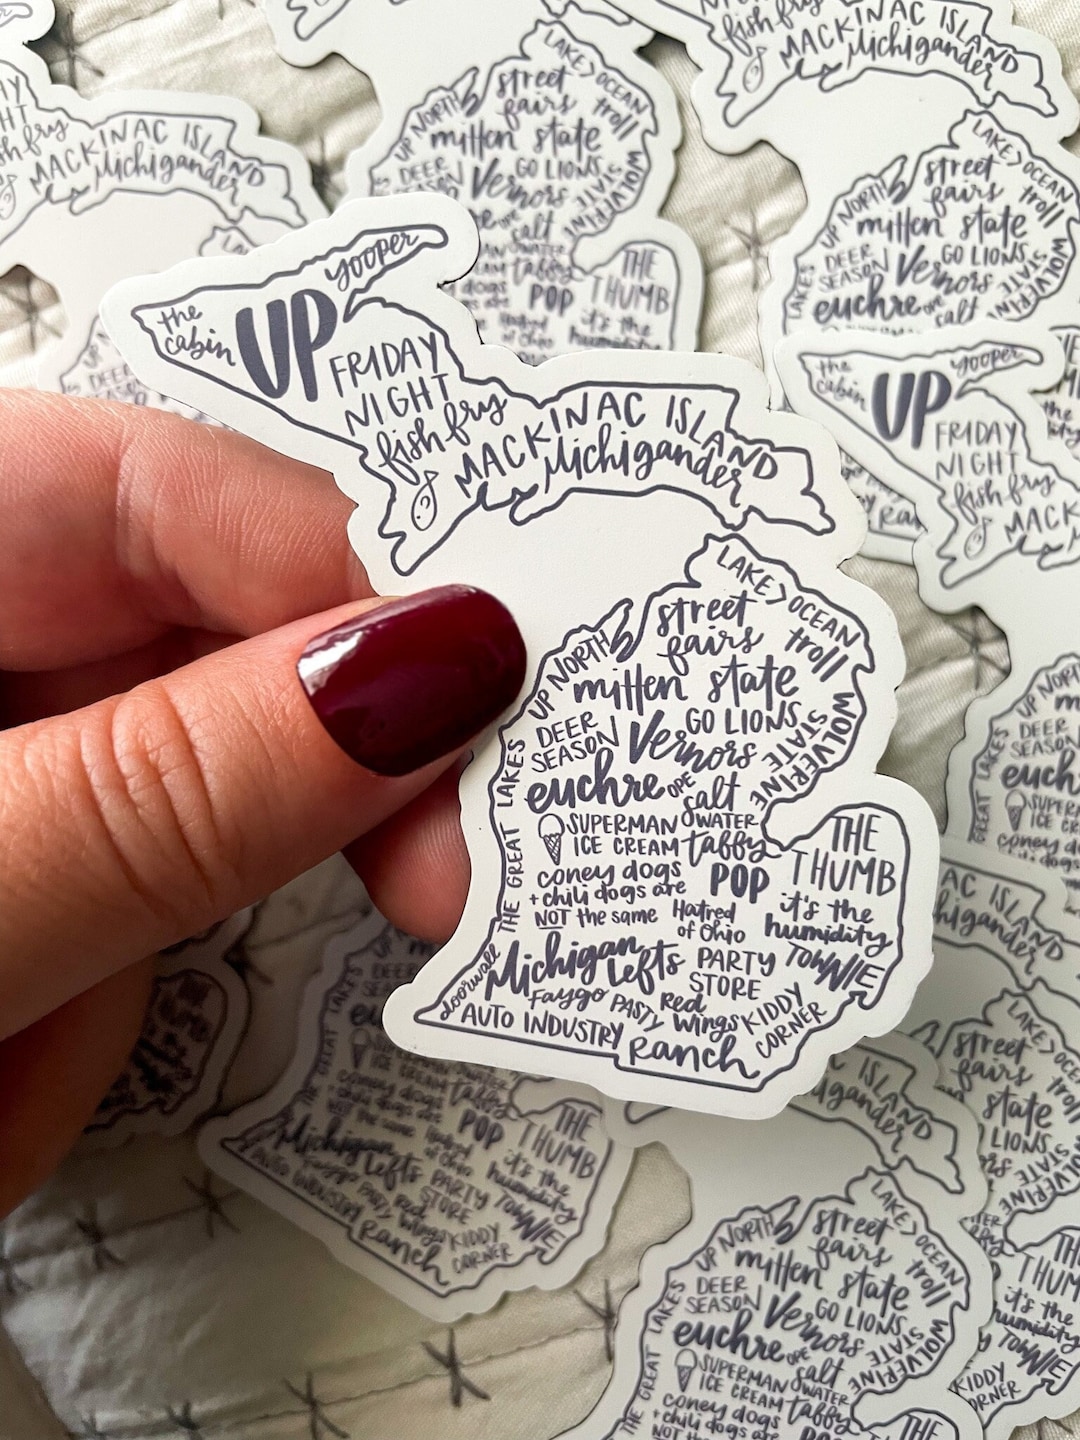 the
cabin
UP
yooper
FRIDAY
NIGHT
fish fry
MACKINAC ISLAND
Michigander
LAKE > OCEAN
street
fairs
troll
UP NORTH
mitten state
DEER
SEASON
GO LIONS
Vernors
WOLVERINE
STATE
THE GREAT LAKES
euchre
OPE
salt
WATER
taffy
SUPERMAN
ICE CREAM
THE
THUMB
coney dogs
+ chili dogs are
NOT the same
POP
Hatred
of Ohio
it's the
humidity
doorwall
Michigan
Lefts
PARTY
STORE
TOWNIE
Faygo
PASTY
Red
Wings
KIDDY
CORNER
AUTO INDUSTRY
Ranch